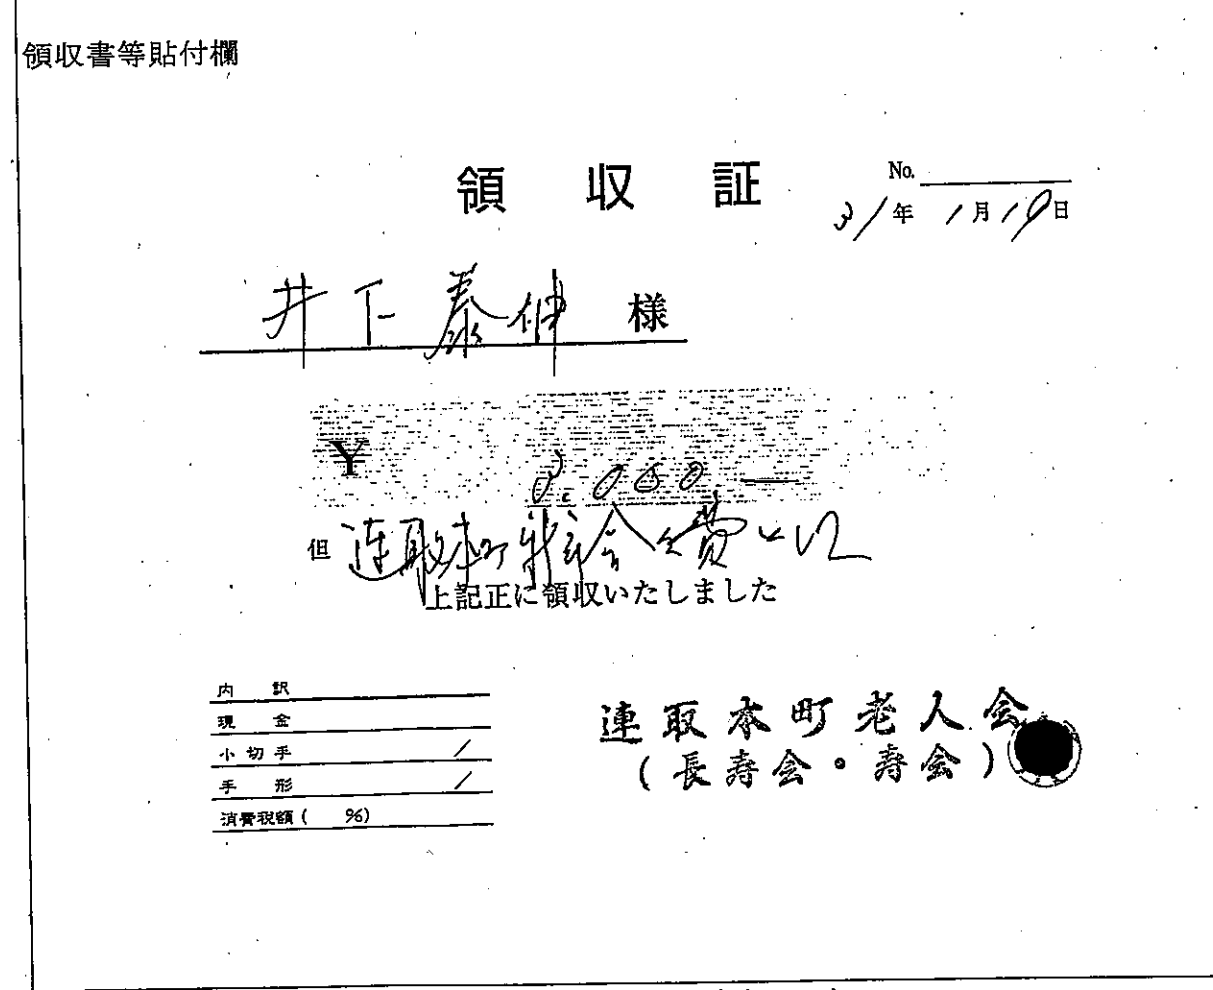 領収書等貼付欄
領収証
No.
31年 1月19日
井下泰伸 様
¥ ,000.—
但 連取本町 会費として
上記正に領収いたしました
内 訳
現 金
小切手 /
手 形 /
消費税額( %)
連取本町老人会
(長寿会・寿会)